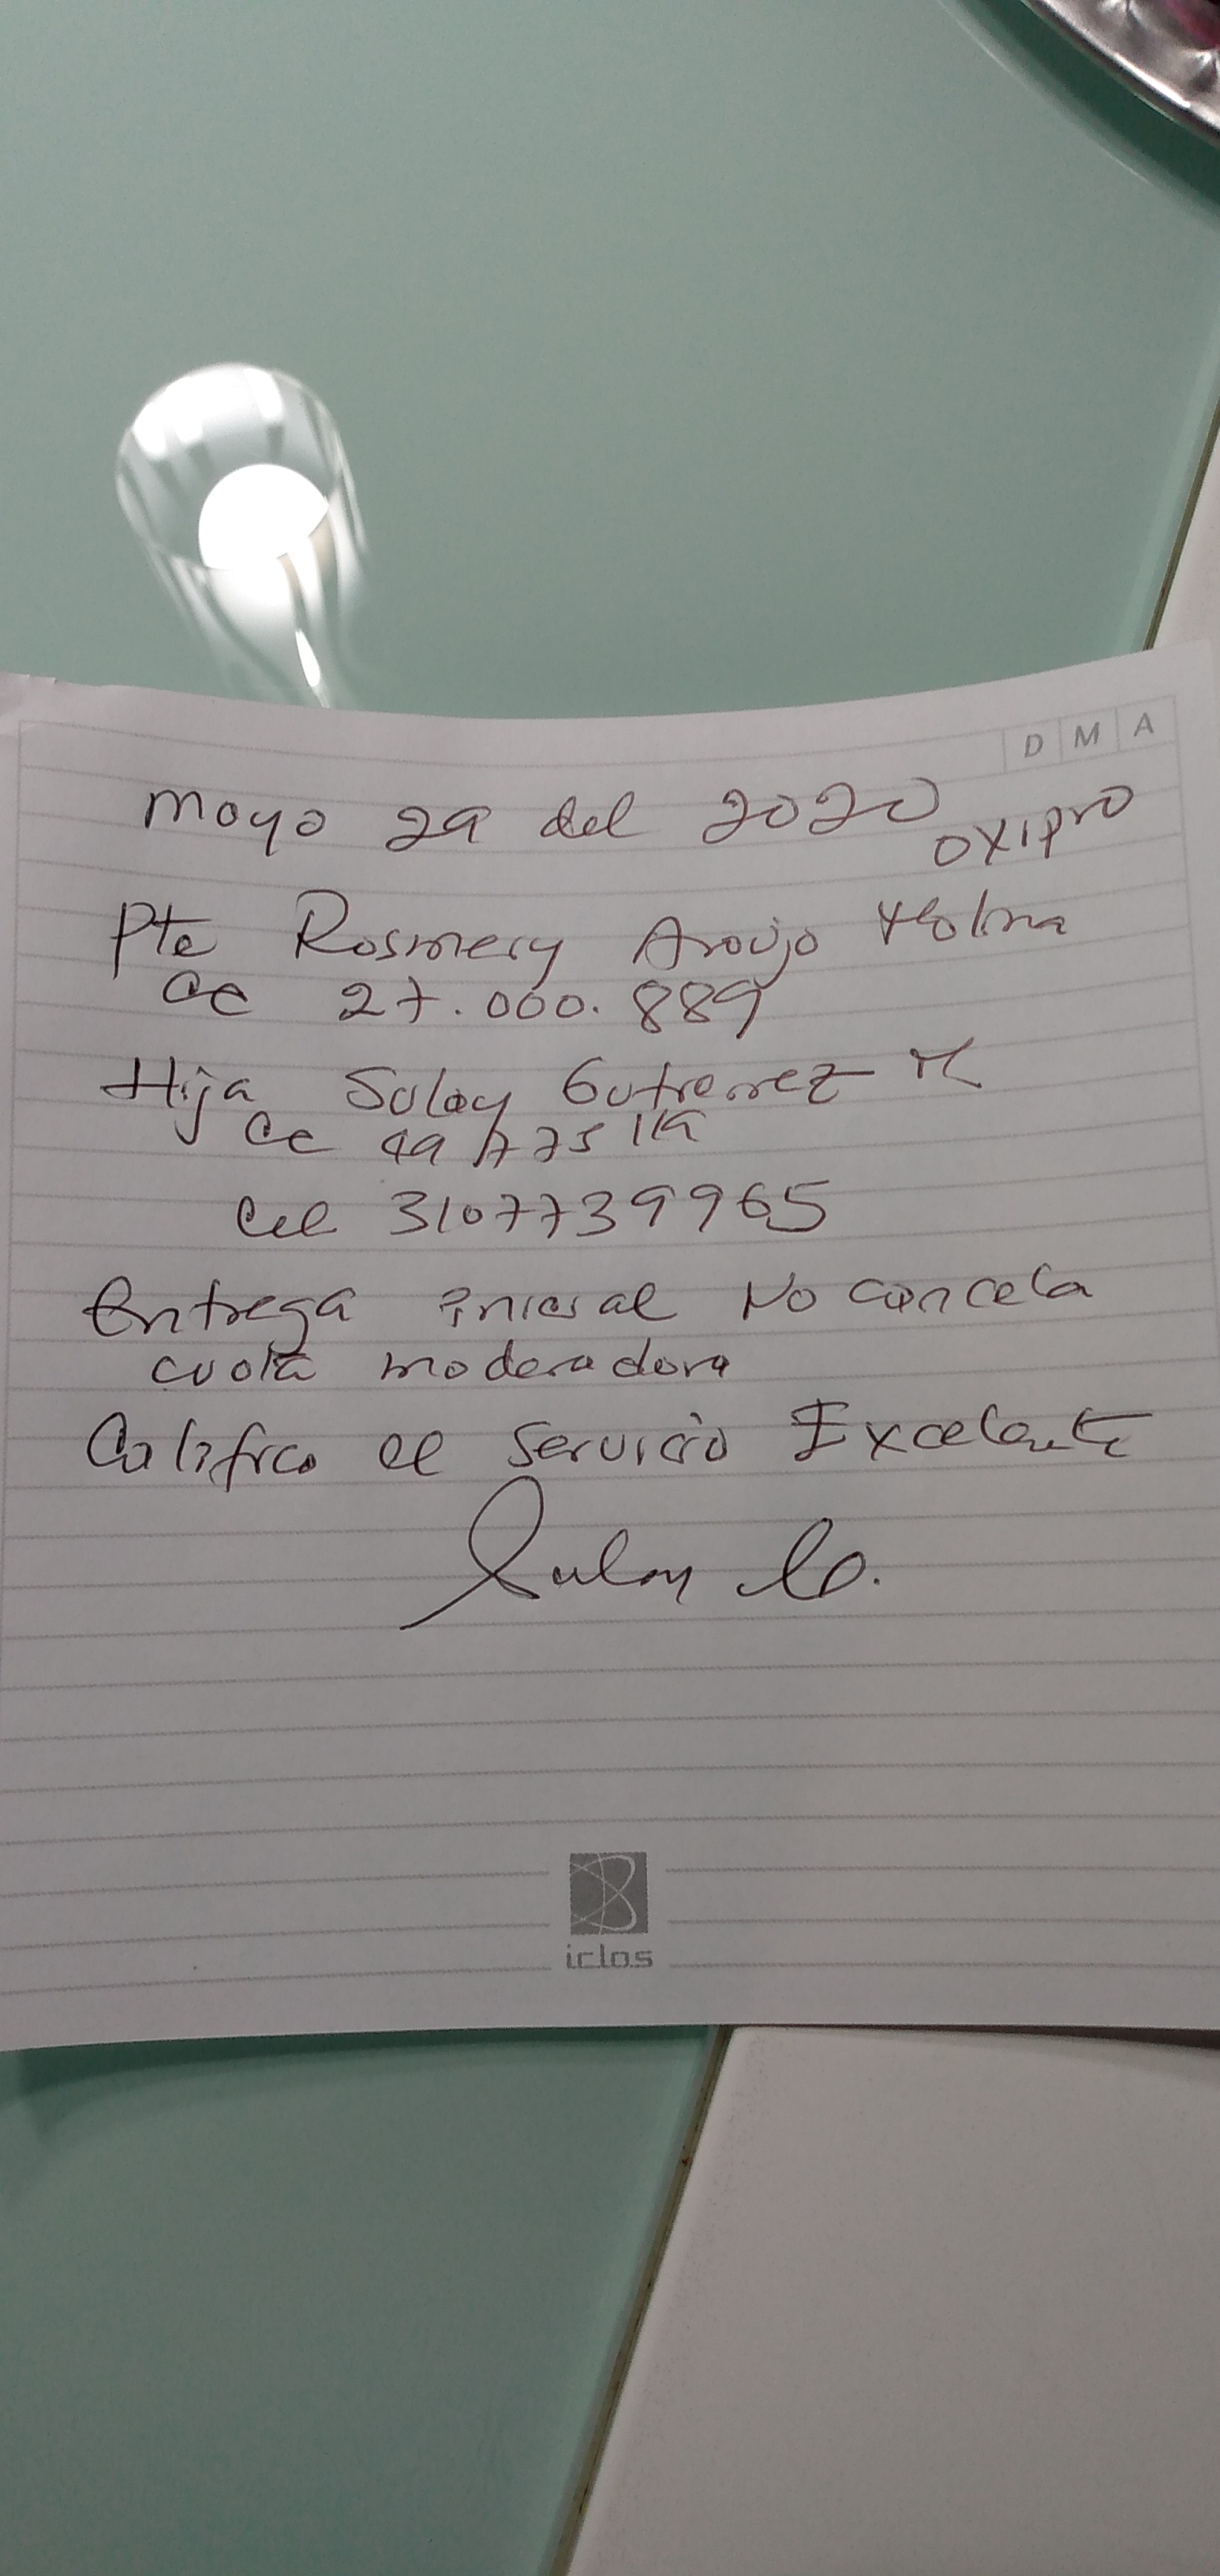 D M A
Mayo 29 del 2020
OXIPRO
Pte Rosmery Araujo Molina
CC 27.000.889
Hija Sulay Gutierrez M
CC 49 775
Cel 3107739965
Entrega inicial No cancela
cuota moderadora
Califico el servicio Excelente
Sulay
iclos